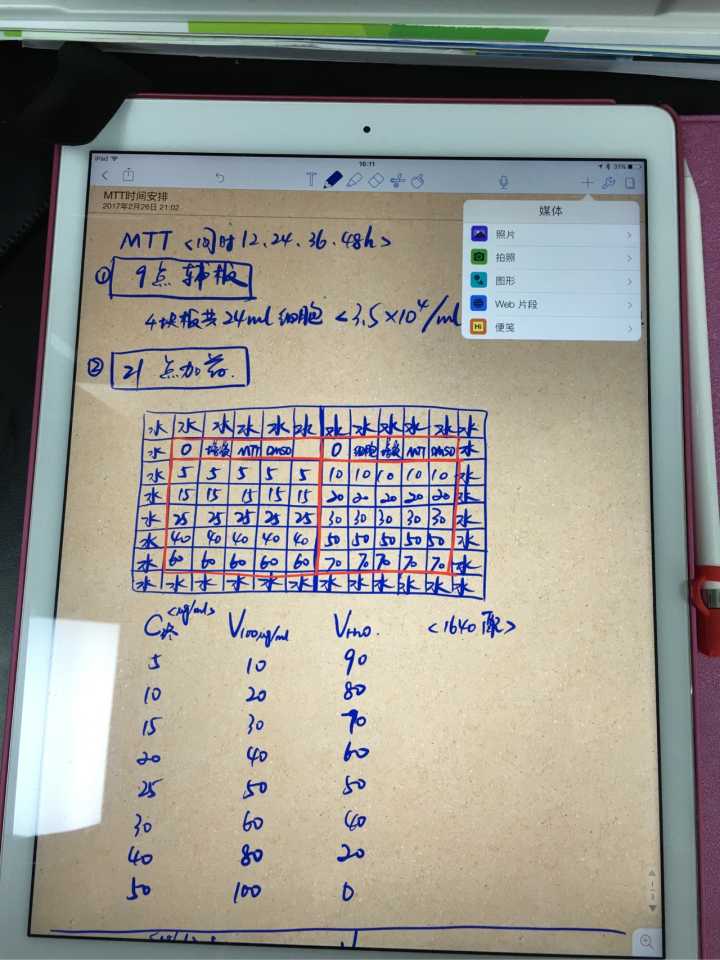 iPad 16:11 31%
MTT时间安排
2017年2月26日 21:02
媒体
照片
拍照
图形
Web 片段
便笺
MTT <同时12、24、36、48h>
① 9点铺板
4块板共24ml细胞 <3.5×10⁴/ml
② 21点加药.
水 水 水 水 水 水 水 水 水 水 水 水
水 0 培液 MTT DMSO 0 细胞 培液 MTT DMSO 水
水 5 5 5 5 5 10 10 10 10 10 水
水 15 15 15 15 15 20 20 20 20 20 水
水 25 25 25 25 25 30 30 30 30 30 水
水 40 40 40 40 40 50 50 50 50 50 水
水 60 60 60 60 60 70 70 70 70 70 水
水 水 水 水 水 水 水 水 水 水 水 水
C终 <μg/ml> V100μg/ml VH₂O. <1640配>
5 10 90
10 20 80
15 30 70
20 40 60
25 50 50
30 60 40
40 80 20
50 100 0